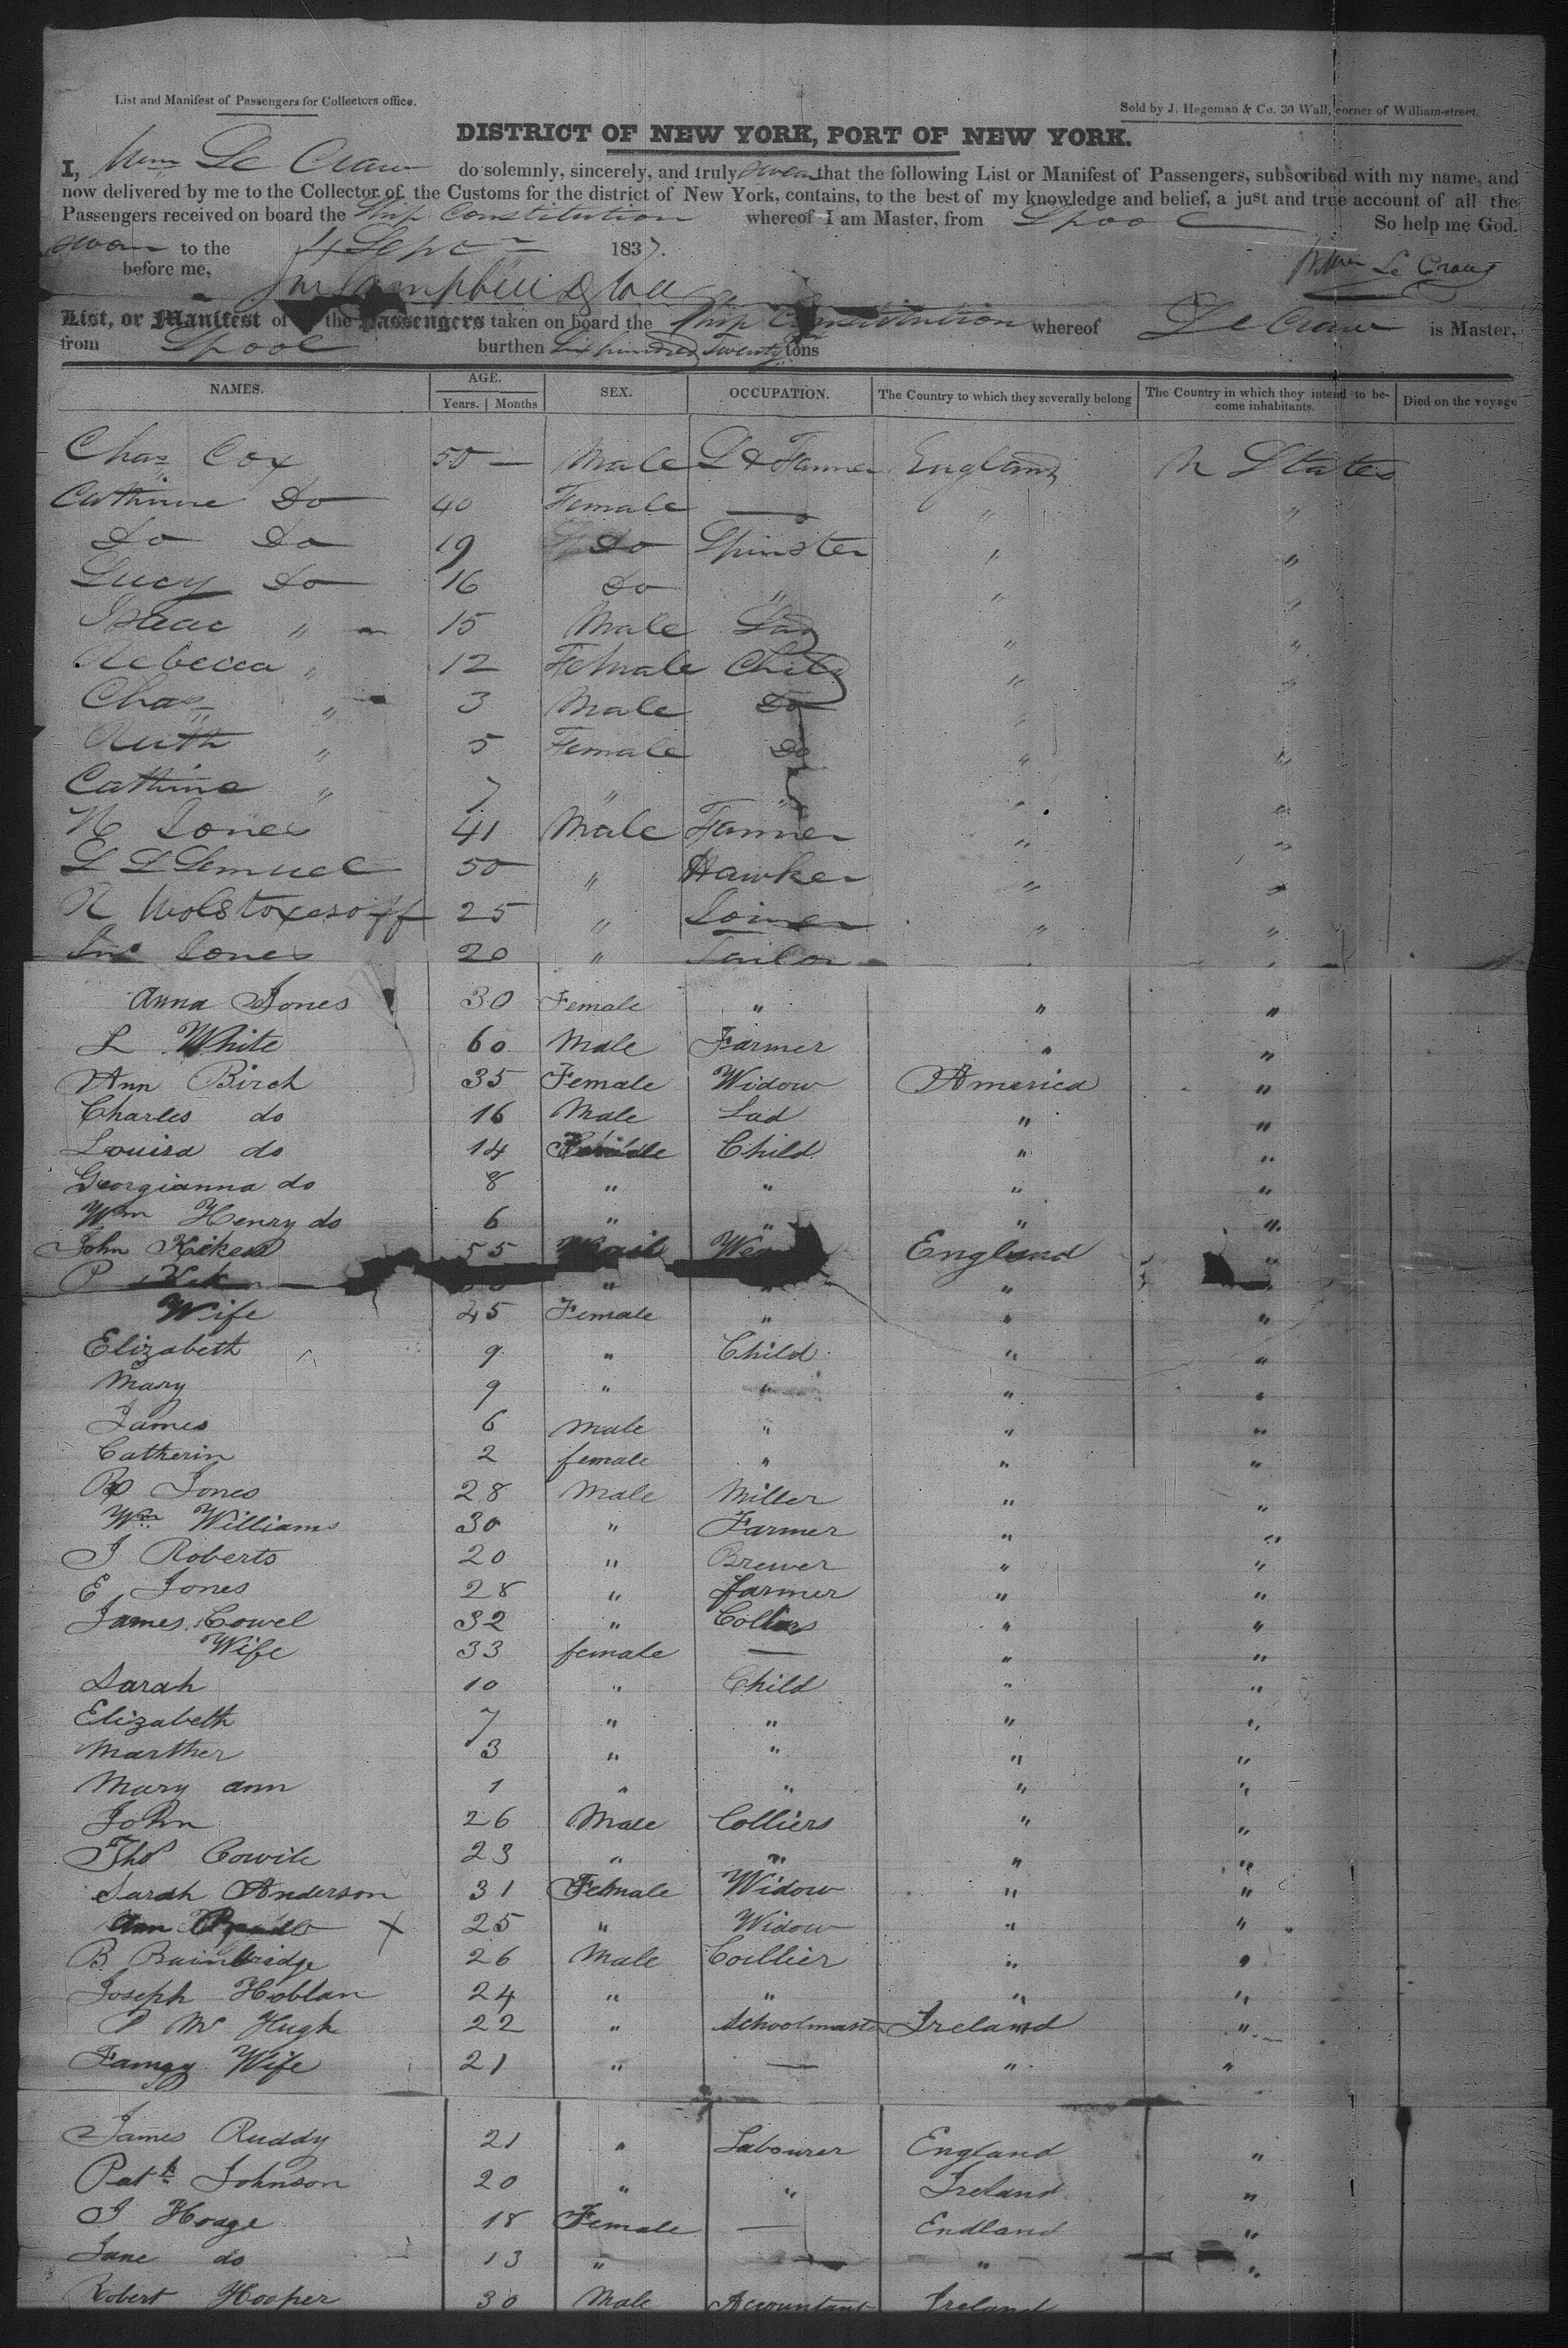 List and Manifest of Passengers for Collectors office.
Sold by J. Hegeman & Co. 30 Wall, corner of William-street.
DISTRICT OF NEW YORK, PORT OF NEW YORK.
I, Wm Le Craw do solemnly, sincerely, and truly swear that the following List or Manifest of Passengers, subscribed with my name, and
now delivered by me to the Collector of the Customs for the district of New York, contains, to the best of my knowledge and belief, a just and true account of all the
Passengers received on board the Ship Constitution whereof I am Master, from Lpool So help me God.
to the 4 Sept 1837.
before me, Wm Le Craw
List, or Manifest of the Passengers taken on board the Ship Constitution whereof Le Craw is Master,
from Lpool burthen Six hundred Twenty tons
NAMES. AGE. SEX. OCCUPATION. The Country to which they severally belong The Country in which they intend to become inhabitants. Died on the voyage
Years. Months
Chas Cox 50 — Male Farmer England U States
Cathrine Do 40 Female — " "
Do Do 19 Do Spinster " "
Lucy Do 16 Do " " "
Isaac " 15 Male Lad " "
Rebecca " 12 Female Child " "
Chas " 3 Male Do " "
Ruth " 5 Female Do " "
Cathine " 7 " " " "
Jones 41 Male Farmer " "
L L Lemuel 50 " Hawker " "
R 25 " Joiner " "
Jno Jones 20 " Tailor " "
Anna Jones 30 Female " " "
L White 60 Male Farmer " "
Ann Birch 35 Female Widow America "
Charles do 16 Male Lad " "
Louisa do 14 Female Child " "
Georgianna do 8 " " " "
Wm Henry do 6 " " " "
John 55 England "
P " " " "
Wife 45 Female " " "
Elizabeth 9 " Child " "
Mary 9 " " " "
James 6 Male " " "
Catherin 2 female " " "
Jones 28 Male Miller " "
Wm Williams 30 " Farmer " "
J Roberts 20 " Brewer " "
E Jones 28 " farmer " "
James Cowel 32 " " "
Wife 33 female — " "
Sarah 10 " Child " "
Elizabeth 7 " " " "
Marther 3 " " " "
Mary ann 1 " " " "
John 26 Male Colliers " "
Thos Cowile 23 " " " "
Sarah Anderson 31 Female Widow " "
Ann X 25 " Widow " "
B Bainbridge 26 Male Collier " "
Joseph Hoblan 24 " " " "
P Mc Hugh 22 " Schoolmaster Ireland "
Wife 21 " — " "
James Ruddy 21 " Labourer England "
Patk Johnson 20 " " Ireland "
J Hoage 18 Female — Endland "
Jane do 13 " — " "
Robert Hooper 30 Male Accountant Ireland